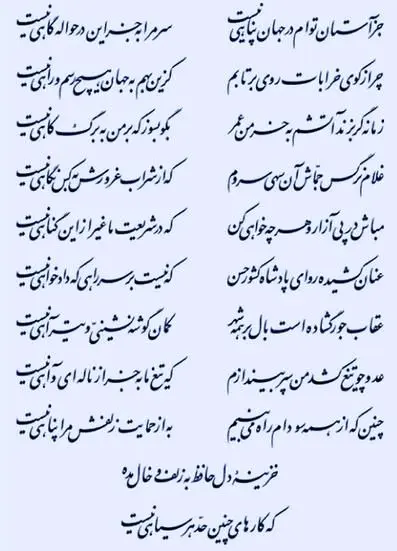 جز آستان توام در جهان پناهی نیست سر مرا به جز این در حواله گاهی نیست
چرا ز کوی خرابات روی برتابم کزین بهم به جهان هیچ رسم و راهی نیست
زمانه گر بزند آتشم به خرمن عمر بگو بسوز که بر من به برگ کاهی نیست
غلام نرگس جمّاش آن سهی سروم که از شراب غرورش به کس نگاهی نیست
مباش در پی آزار و هر چه خواهی کن که در شریعت ما غیر از این گناهی نیست
عنان کشیده رو ای پادشاه کشور حسن که نیست بر سر راهی که دادخواهی نیست
عقاب جور گشاده است بال بر همه شهر کمان گوشه نشینی و تیر آهی نیست
عدو چو تیغ کشد من سپر بیندازم که تیغ ما به جز از ناله ای و آهی نیست
چنین که از همه سو دام راه می بینم به از حمایت زلفش مرا پناهی نیست
خزینهٔ دل حافظ به زلف و خال مده
که کارهای چنین حدّ هر سیاهی نیست